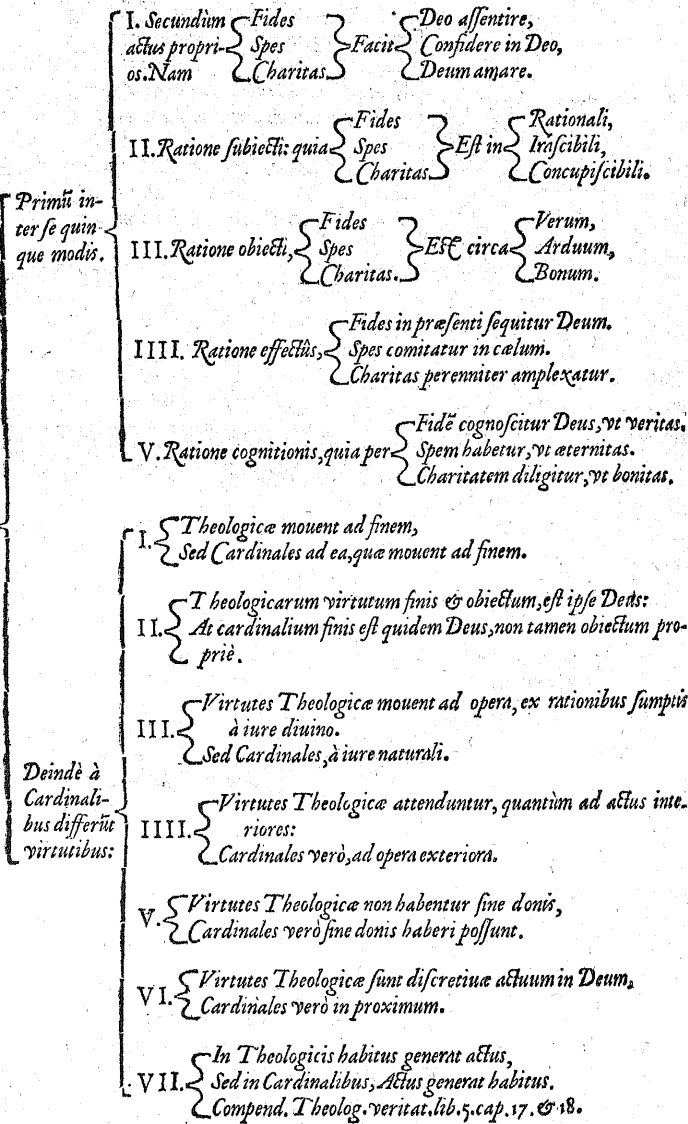 I. Secundùm
actus propri-
os. Nam
Fides
Spes
Charitas
Facit
Deo aſſentire,
Confidere in Deo,
Deum amare.
II. Ratione ſubiecti: quia
Fides
Spes
Charitas
Eſt in
Rationali,
Iraſcibili,
Concupiſcibili.
Primū in-
ter ſe quin-
que modis.
III. Ratione obiecti,
Fides
Spes
Charitas.
Eſt circa
Verum,
Arduum,
Bonum.
IIII. Ratione effectûs,
Fides in præſenti ſequitur Deum.
Spes comitatur in cælum.
Charitas perenniter amplexatur.
V. Ratione cognitionis, quia per
Fidē cognoſcitur Deus, vt veritas.
Spem habetur, vt æternitas.
Charitatem diligitur, vt bonitas.
Deindè à
Cardinali-
bus differūt
virtutibus:
I. Theologicæ mouent ad finem,
Sed Cardinales ad ea, quæ mouent ad finem.
II. Theologicarum virtutum finis & obiectum, eſt ipſe Deus:
At cardinalium finis eſt quidem Deus, non tamen obiectum pro-
priè.
III. Virtutes Theologicæ mouent ad opera, ex rationibus ſumptis
à iure diuino.
Sed Cardinales, à iure naturali.
IIII. Virtutes Theologicæ attenduntur, quantùm ad actus inte-
riores:
Cardinales verò, ad opera exteriora.
V. Virtutes Theologicæ non habentur ſine donis,
Cardinales verò ſine donis haberi poſſunt.
VI. Virtutes Theologicæ ſunt diſcretiuæ actuum in Deum,
Cardinales verò in proximum.
VII. In Theologicis habitus generat actus,
Sed in Cardinalibus, Actus generat habitus.
Compend. Theolog. veritat. lib. 5. cap. 17. & 18.